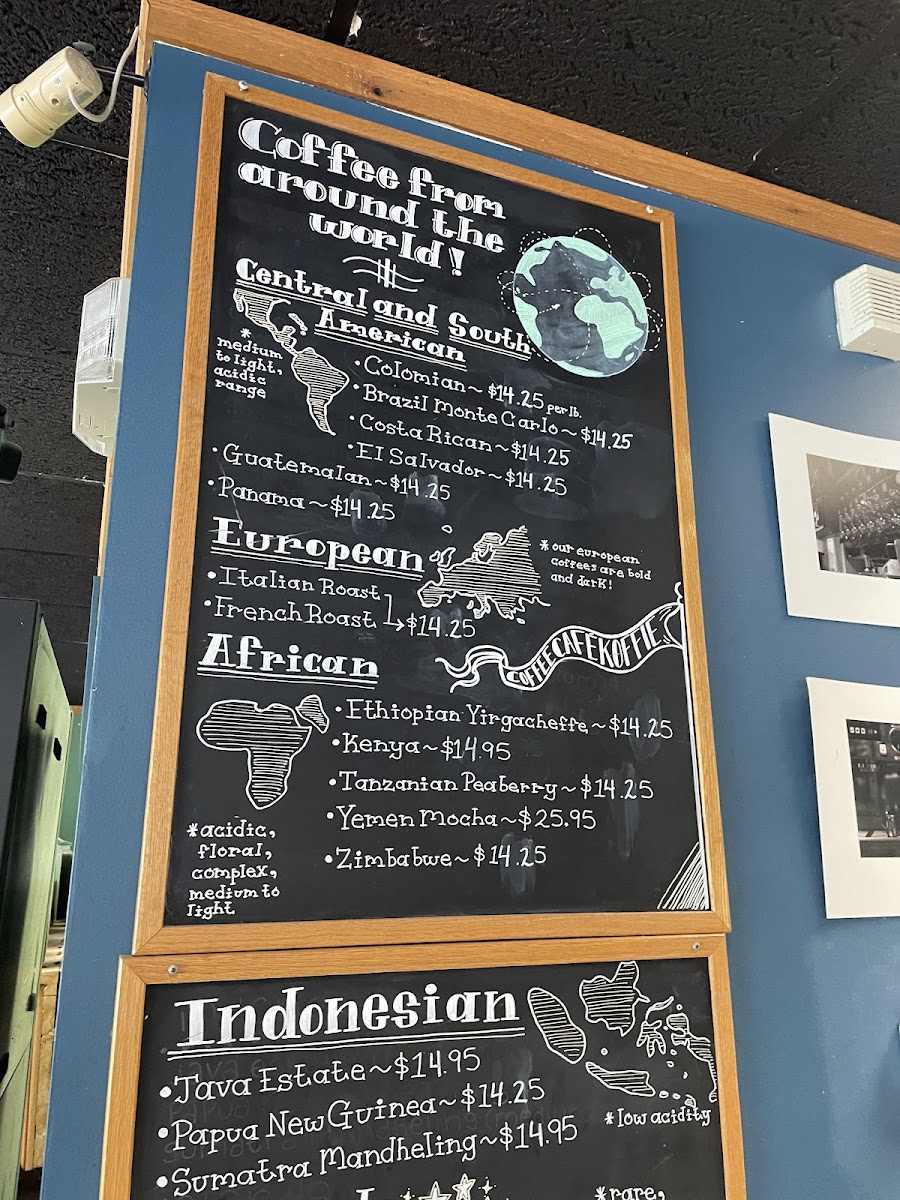 Coffee from
around the
world!
Central and South
American
* medium
to light,
acidic
range
• Colomian ~ $14.25 per lb.
• Brazil Monte Carlo ~ $14.25
• Costa Rican ~ $14.25
• El Salvador ~ $14.25
• Guatemalan ~ $14.25
• Panama ~ $14.25
European
* our european
coffees are bold
and dark!
• Italian Roast
• French Roast → $14.25
COFFEE CAFE KOFFIE
African
• Ethiopian Yirgacheffe ~ $14.25
• Kenya ~ $14.95
• Tanzanian Peaberry ~ $14.25
• Yemen Mocha ~ $25.95
• Zimbabwe ~ $14.25
* acidic,
floral,
complex,
medium to
light
Indonesian
• Java Estate ~ $14.95
• Papua New Guinea ~ $14.25
• Sumatra Mandheling ~ $14.95
* low acidity
* rare,